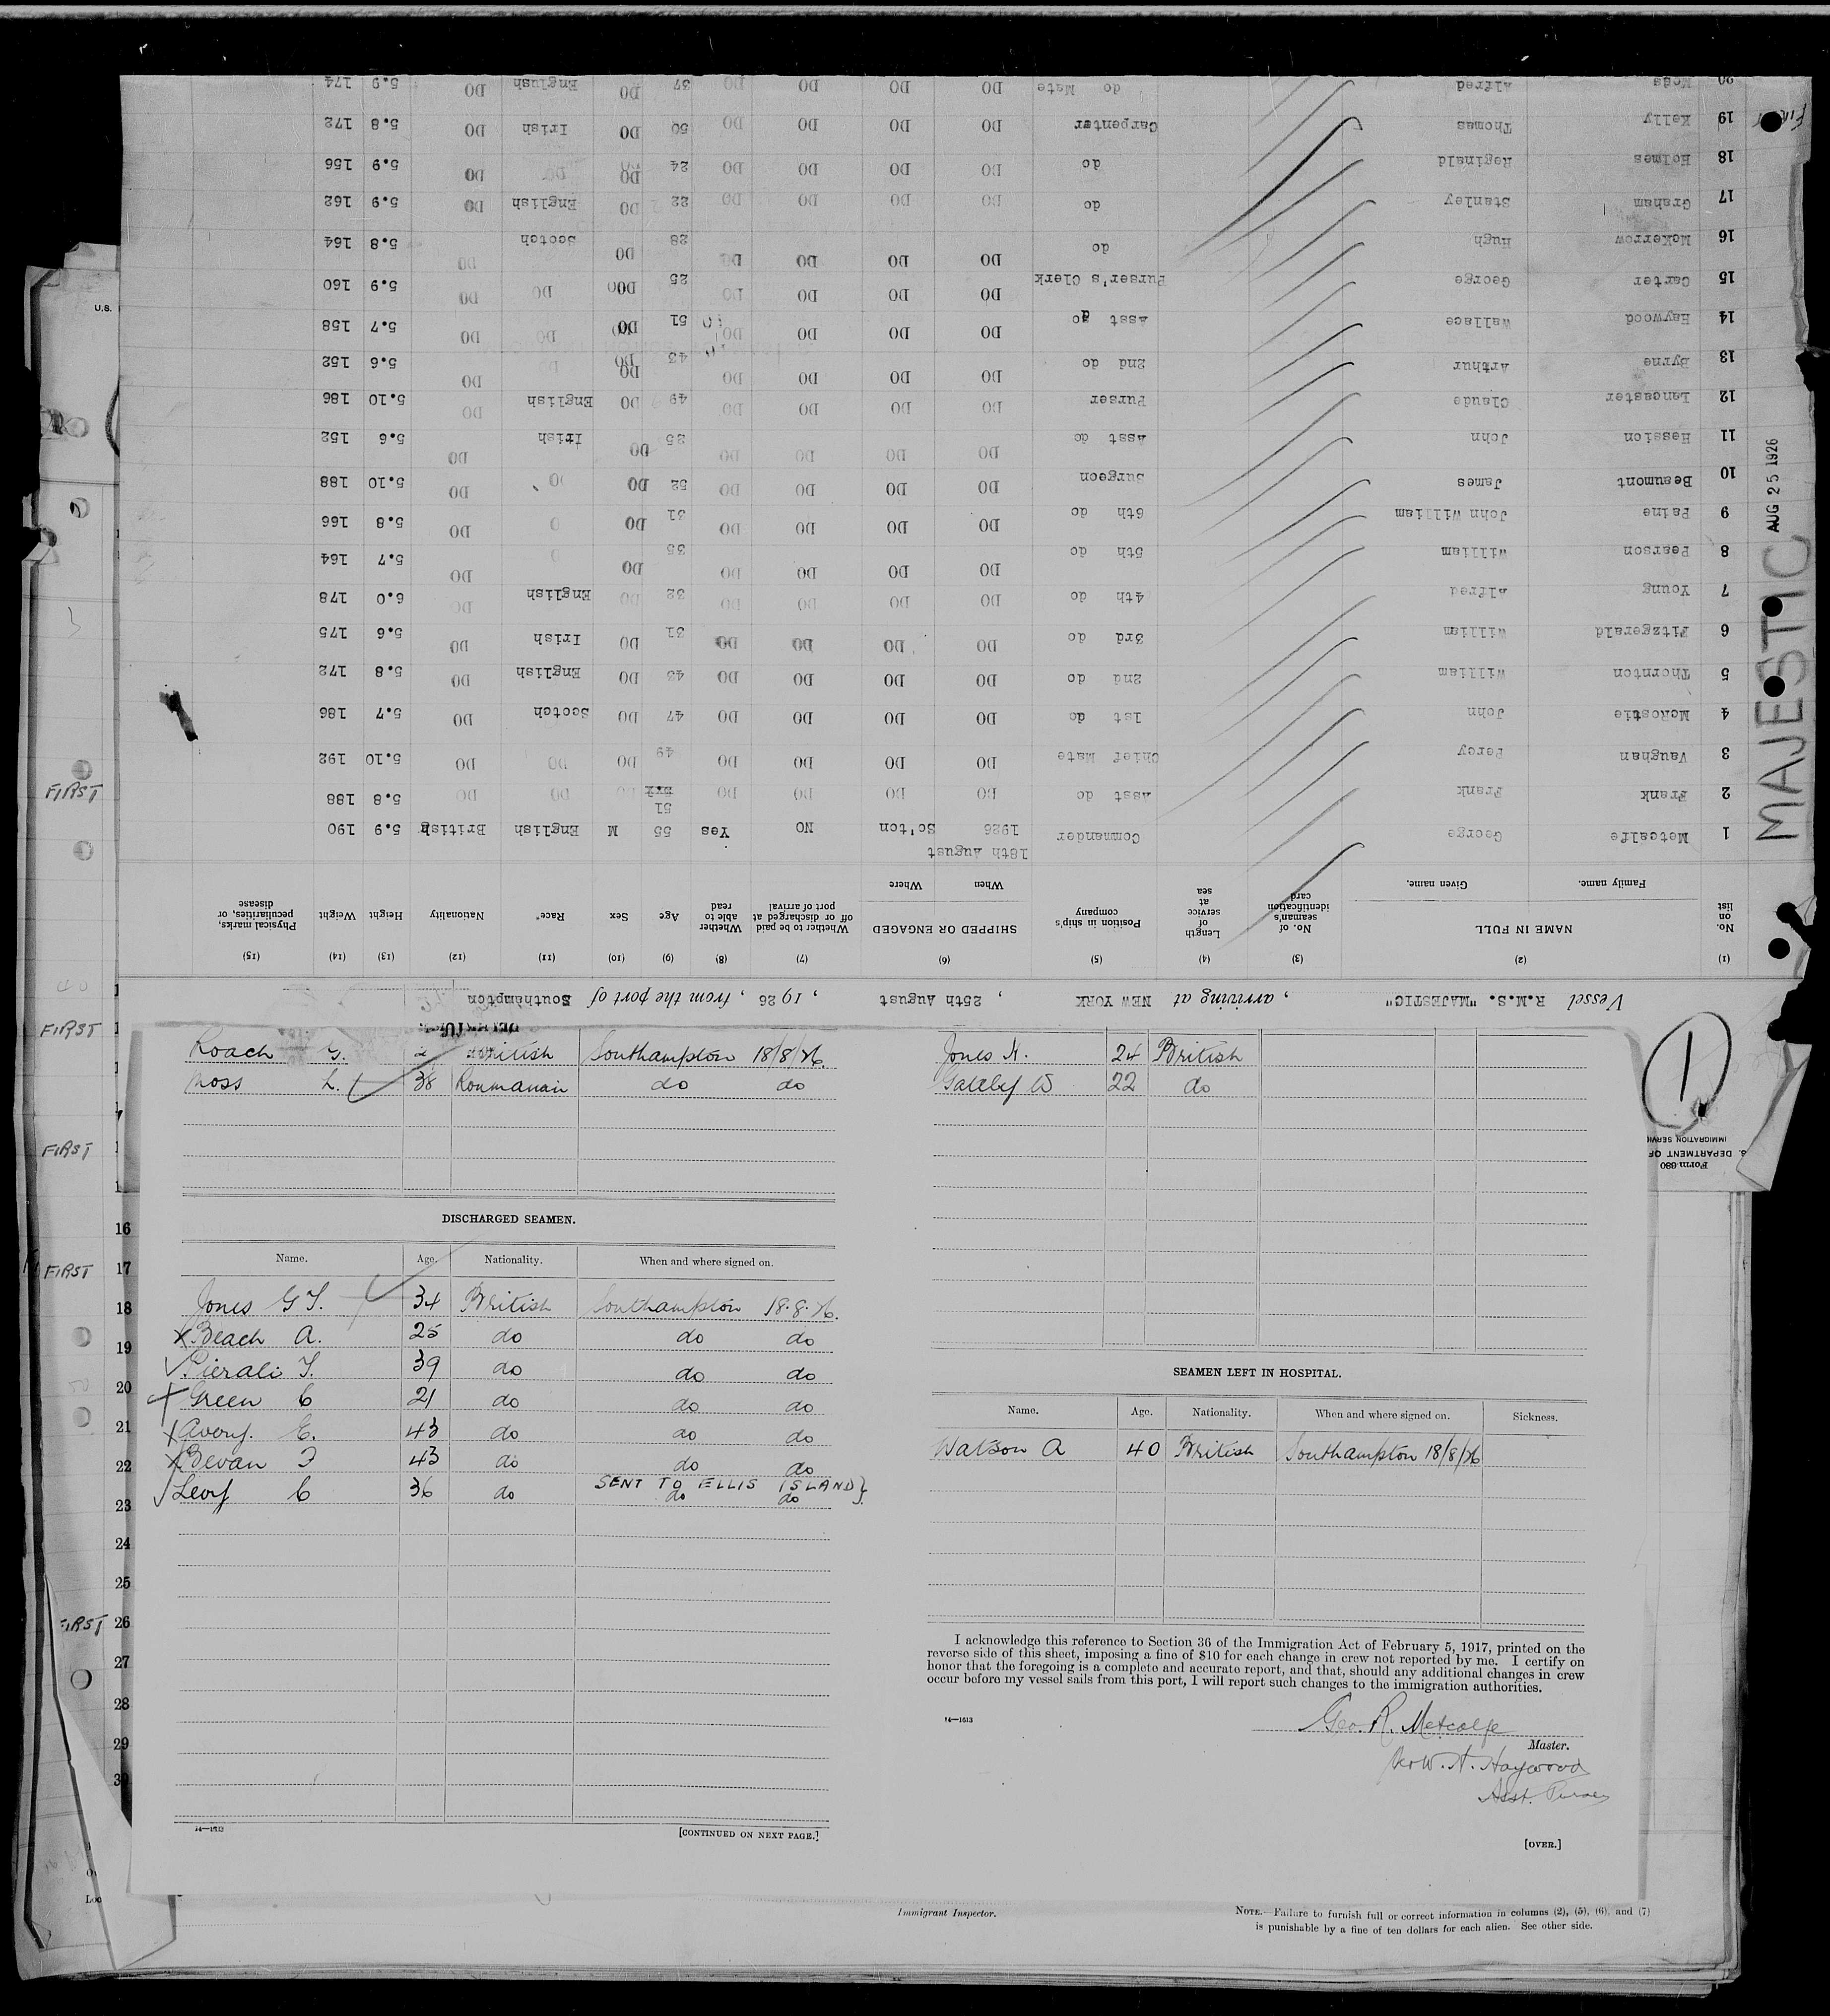 Vessel R.M.S. "MAJESTIC", arriving at NEW YORK, 25th August, 1926, from the port of Southampton
(1) (2) (3) (4) (5) (6) (7) (8) (9) (10) (11) (12) (13) (14) (15)
No. on list NAME IN FULL No. of seaman's identification card Length of service at sea Position in ship's company SHIPPED OR ENGAGED Whether to be paid off or discharged at port of arrival Whether able to read Age Sex Race* Nationality Height Weight Physical marks, peculiarities, or disease
Family name. Given name. When Where
18th August
1 Metcalfe George Commander 1926 So'ton NO Yes 55 M English British 5.9 190
2 Frank Frank Asst do DO DO DO DO 51 DO DO DO 5.8 188
3 Vaughan Percy Chief Mate DO DO DO DO 49 DO DO DO 5.10 192
4 McRostie John 1st do DO DO DO DO 47 DO Scotch DO 5.7 186
5 Thornton William 2nd do DO DO DO DO 43 DO English DO 5.8 172
6 Fitzgerald William 3rd do DO DO DO DO 31 DO Irish DO 5.6 175
7 Young Alfred 4th do DO DO DO DO 32 DO English DO 6.0 178
8 Pearson William 5th do DO DO DO DO 35 DO DO 5.7 164
9 Paine John William 6th do DO DO DO DO 31 DO DO 5.8 166
10 Beaumont James Surgeon DO DO DO DO 52 DO DO DO 5.10 188
11 Hession John Asst do DO DO DO DO 25 DO Irish DO 5.6 152
12 Lancaster Claude Purser DO DO DO DO 49 DO English DO 5.10 186
13 Byrne Arthur 2nd do DO DO DO DO 43 DO DO 5.6 152
14 Haywood Wallace Asst do DO DO DO DO 51 DO DO DO 5.7 158
15 Carter George Purser's Clerk DO DO DO DO 25 DO DO DO 5.9 160
16 McKerrow Hugh do DO DO DO DO 28 DO Scotch DO 5.8 164
17 Graham Stanley do DO DO DO DO 22 DO English DO 5.9 162
18 Holmes Reginald do DO DO DO DO 24 DO DO DO 5.9 156
19 Kelly Thomas Carpenter DO DO DO DO 50 DO Irish DO 5.8 172
20 Moss Alfred do Mate DO DO DO DO 37 DO English DO 5.9 174
MAJESTIC AUG 25 1926
1
Form 680
DEPARTMENT OF
IMMIGRATION SERVI
U.S.
FIRST
FIRST
FIRST
FIRST
FIRST
16
17
18
19
20
21
22
23
24
25
26
27
28
29
30
Roach G. British Southampton 18/8/26.
Moss L. 38 Roumanain do do
DISCHARGED SEAMEN.
Name. Age. Nationality. When and where signed on.
Jones G T. 34 British Southampton 18.8.26.
x Beach A. 25 do do do
Pierali T. 39 do do do
Green C 21 do do do
x Avory. E. 43 do do do
x Bevan F 43 do do do
SENT TO ELLIS ISLAND}
Levy C 36 do do do
14—1613
[CONTINUED ON NEXT PAGE.]
Jones H. 24 British
Gately W 22 do
SEAMEN LEFT IN HOSPITAL.
Name. Age. Nationality. When and where signed on. Sickness.
Watson A 40 British Southampton 18/8/26
I acknowledge this reference to Section 36 of the Immigration Act of February 5, 1917, printed on the
reverse side of this sheet, imposing a fine of $10 for each change in crew not reported by me. I certify on
honor that the foregoing is a complete and accurate report, and that, should any additional changes in crew
occur before my vessel sails from this port, I will report such changes to the immigration authorities.
14—1613
Geo. R. Metcalfe
Master.
Per W. H. Haywood
Asst. Purser
[OVER.]
Immigrant Inspector.
NOTE.—Failure to furnish full or correct information in columns (2), (5), (6), and (7)
is punishable by a fine of ten dollars for each alien. See other side.